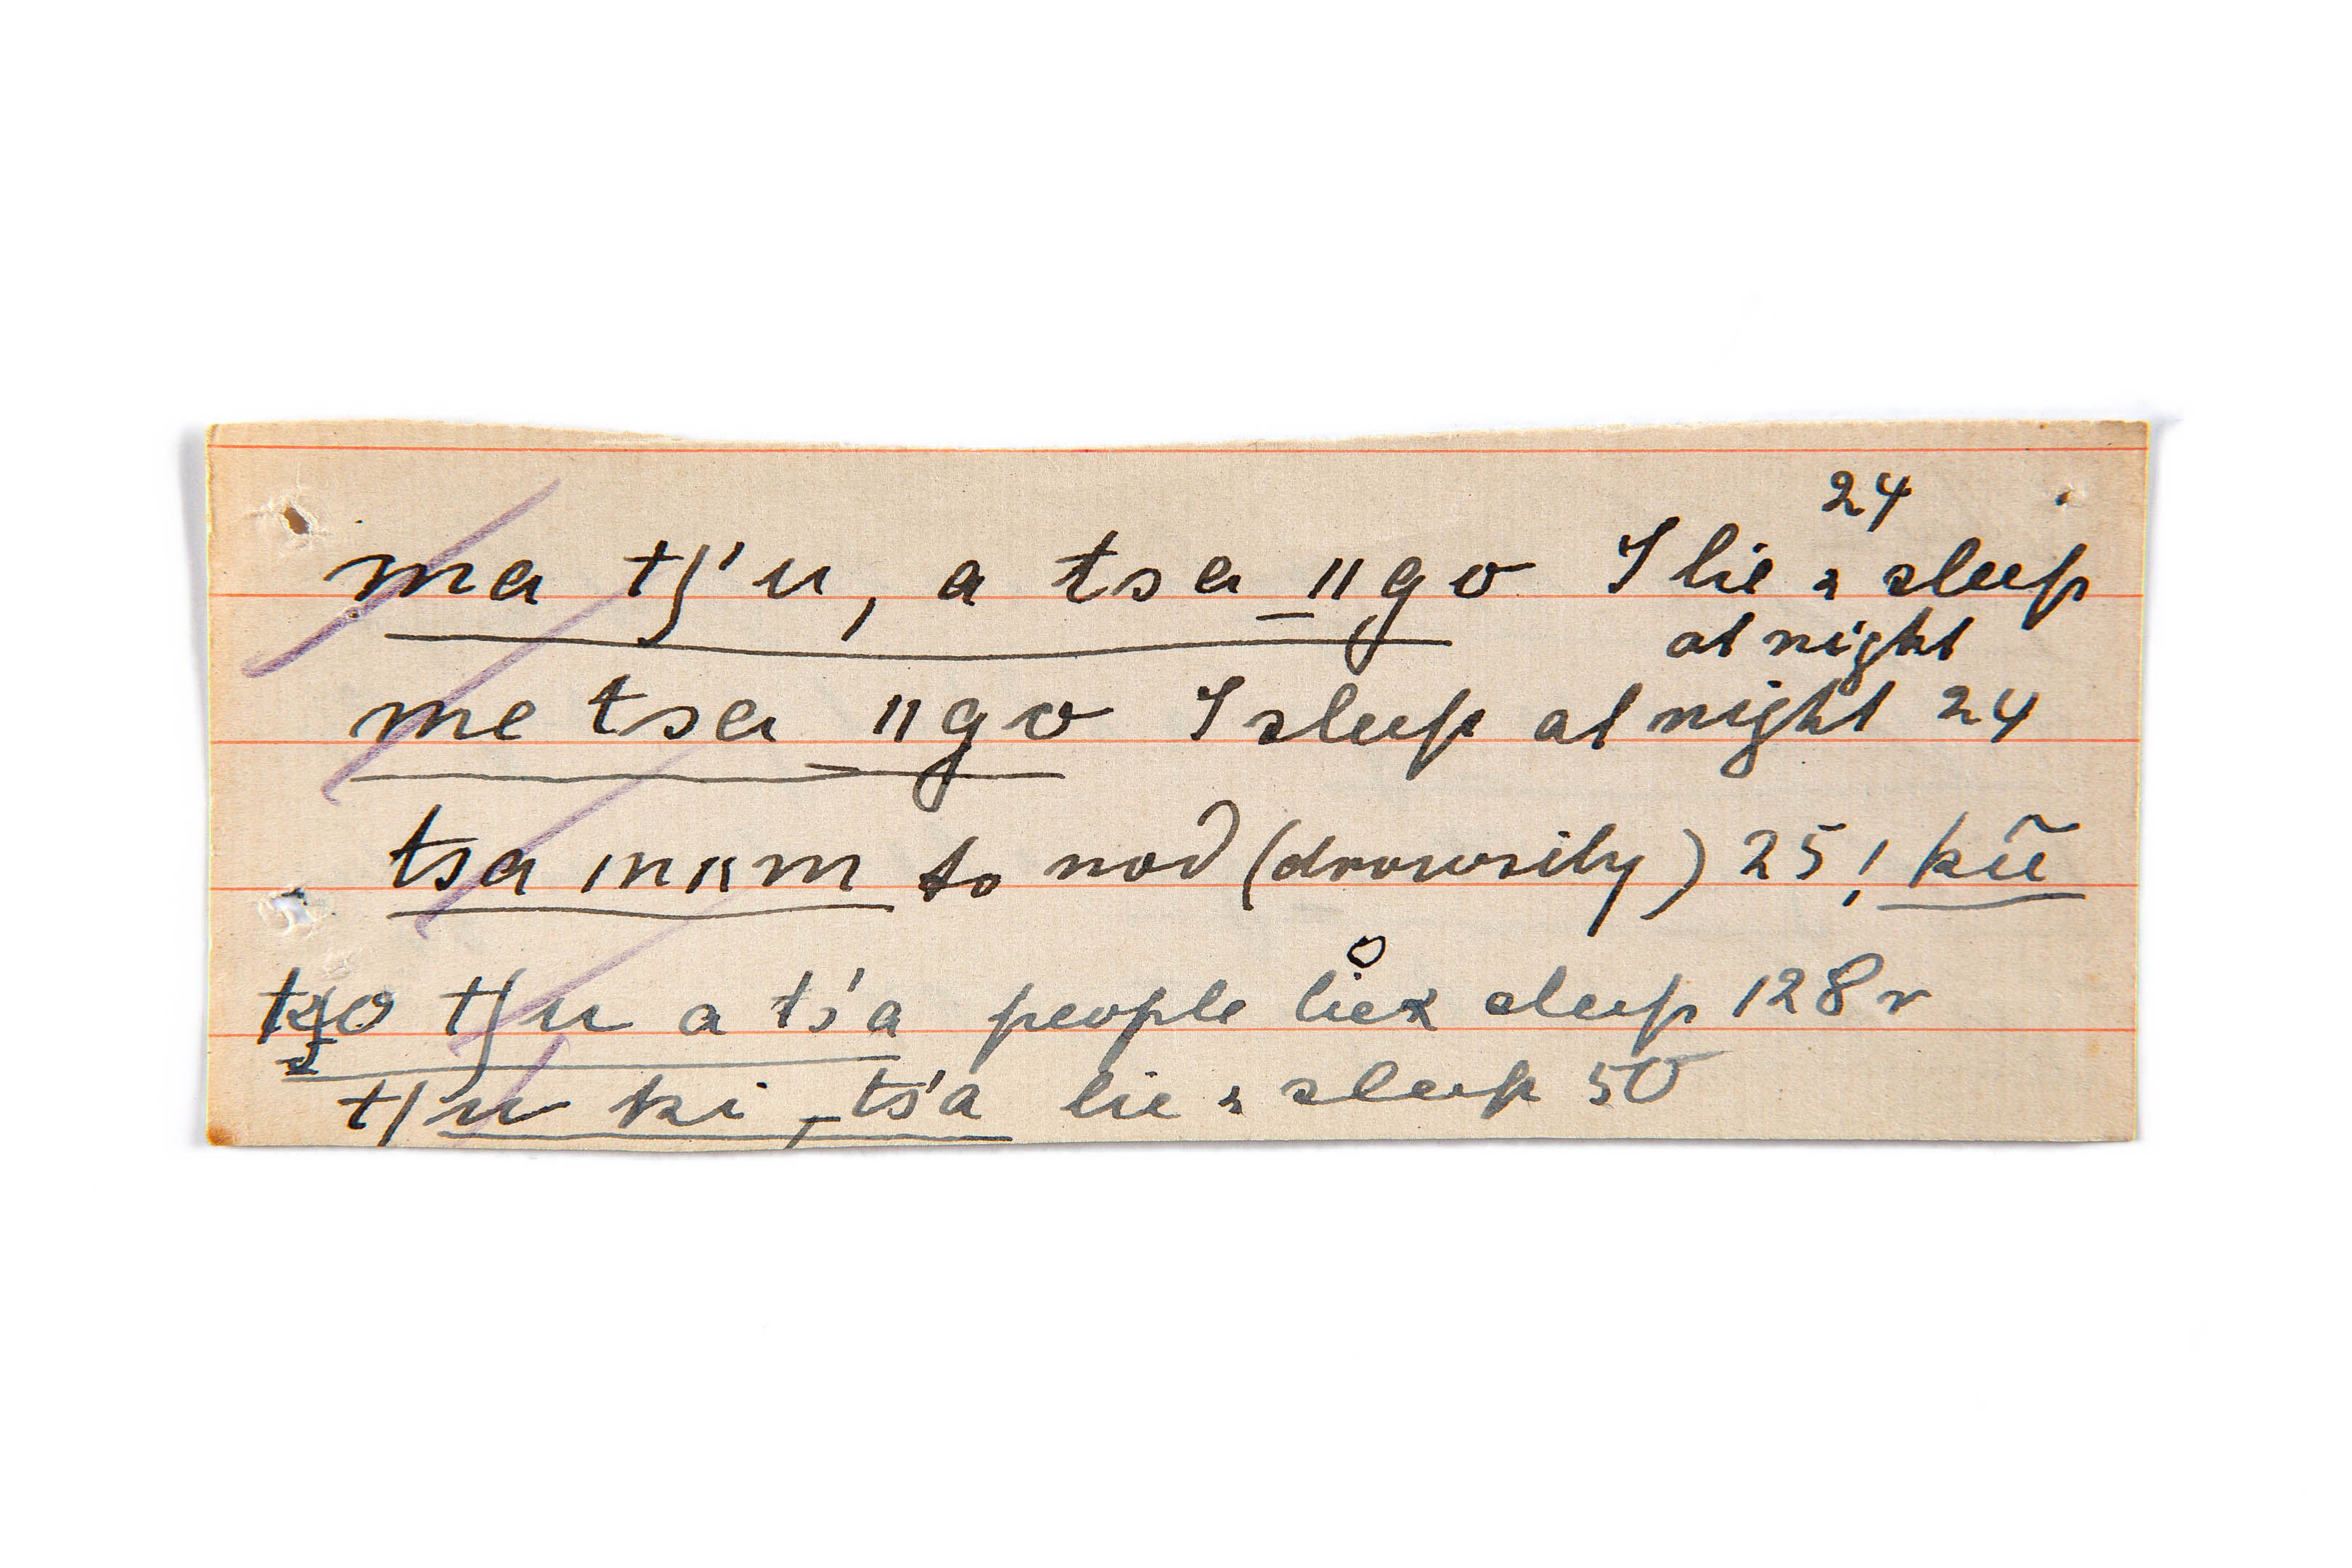 24
ma tʃ'u, a tsa ǁgo I lie & sleep
at night
me tsa ǁgo I sleep at night 24
tsa ınıım to nod (drowsily) 25 ! kũ
tʃu a ts'a people lie & sleep 128 r
tʃu ki, ts'a lie & sleep 50